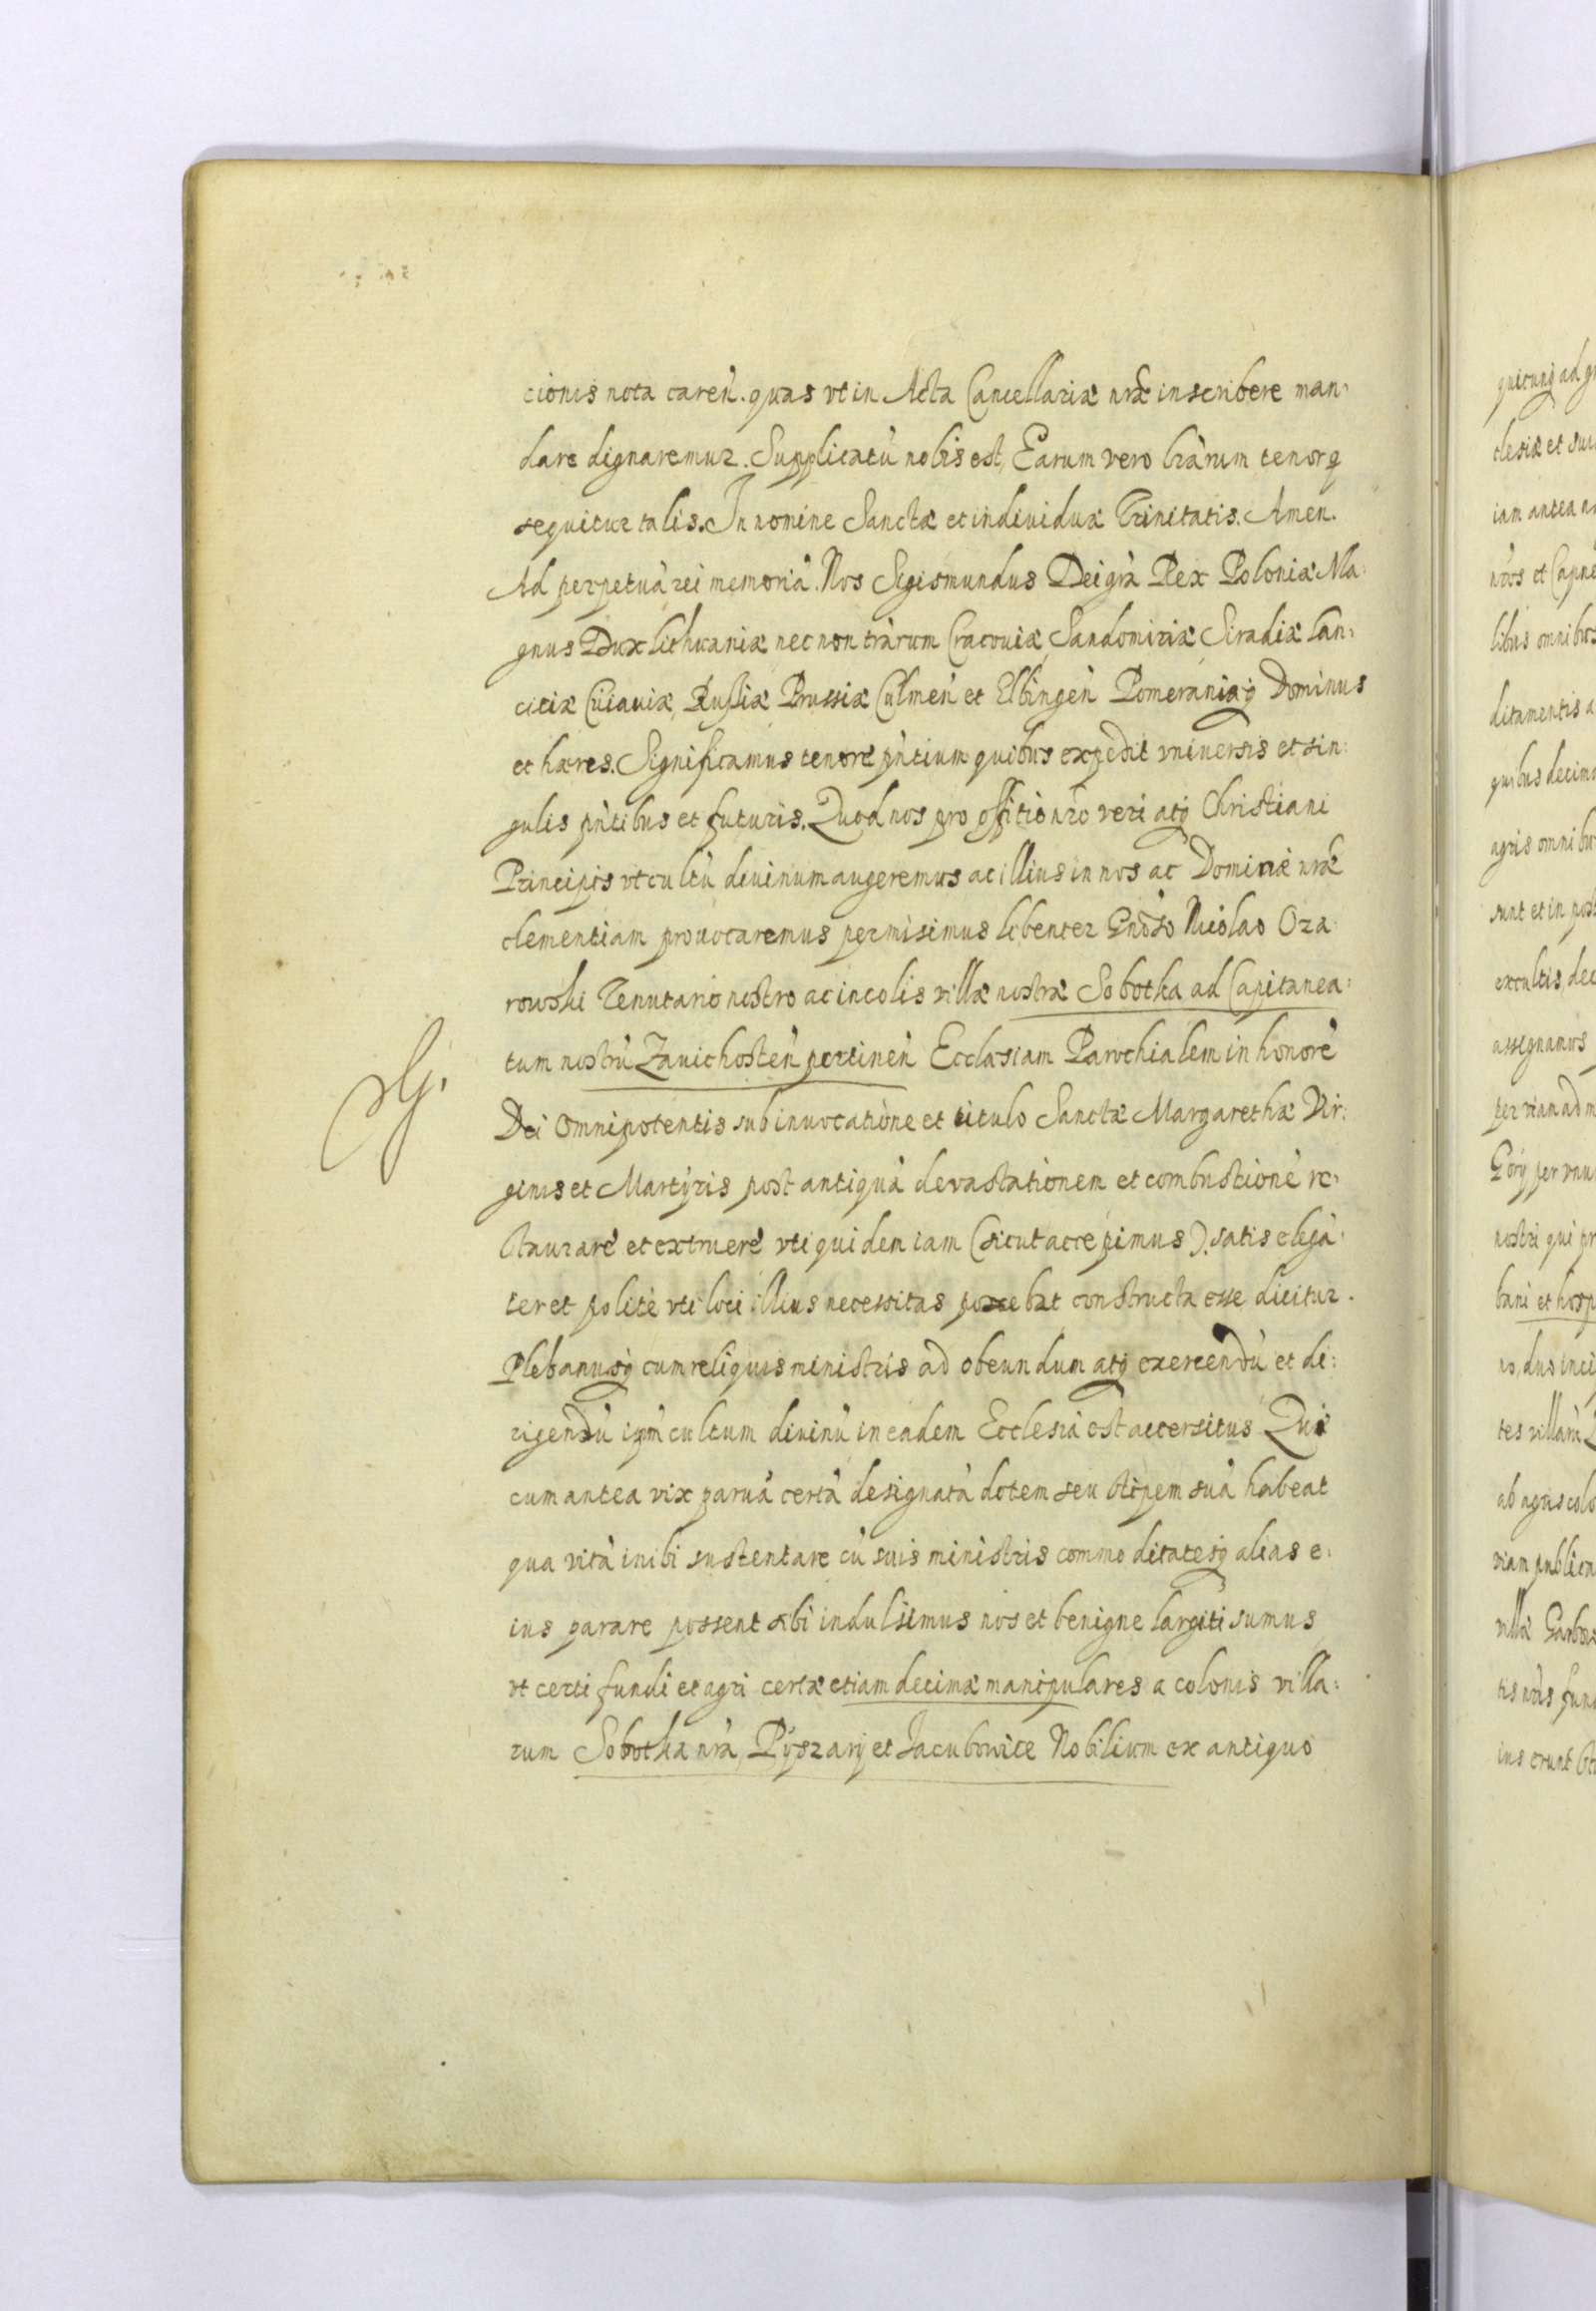 cionis nota careñ. quas vt in Acta Cancellariæ nræ inscribere man:
dare dignaremur. Supplicatũ nobis est, Earum vero lrarum tenor q
sequitur talis. In nomine Sanctæ et indiuiduæ Trinitatis. Amen.
Ad perpetuã rei memoriã. Nos Sigismundus Dei grã Rex Poloniæ Ma:
gnus Dux Lithuaniæ nec non trarum Cracouiæ, Sandomiriæ Siradiæ Lan:
citiæ Cuiauiæ, Russiæ Prussiæ Culmeñ et Elbingeñ Pomeraniæq Dominus
et hæres. Significamus tenore pñtium quibus expedit vniuersis et sin:
gulis pñtibus et futuris. Quod nos pro offitio nro veri atq Christiani
Principis vt cultũ diuinum augeremus ac illius in nos ac Dominiẽ nræ
clementiam prouocaremus permisimus libenter Gnoso Nicolao Oza:
rowski Tenutario nostro ac incolis villæ nostræ Sobotka ad Capitanea:
tum nostrũ Zauichosteñ pertineñ Ecclesiam Parochialem in honorẽ
Dei Omnipotentis sub inuocatione et titulo Sanctæ Margarethæ Vir:
ginis et Martyris post antiquã devastationem et combustionẽ re:
staurare et extruere vti quidem iam (sicut accepimus). satis elegã:
ter et polite vti loci illius necessitas poscebat constructa esse dicitur.
Plebanusq cum reliquis ministris ad obeundum atq exercendũ et di:
rigendũ ipm cultum diuinũ in eadem Ecclesia est accersitus Qui
cum antea vix paruã certã designatã dotem seu stipem suã habeat
qua vitã inibi sustentare cũ suis ministris commoditatesq alias e:
ius parare possent sibi indulsimus nos et benigne largiti sumus
vt certi fundi et agri certæ etiam decimæ manipulares a colonis villa:
rum Sobotka nra, Pyszary et Jacubowice Nobilium ex antiquo